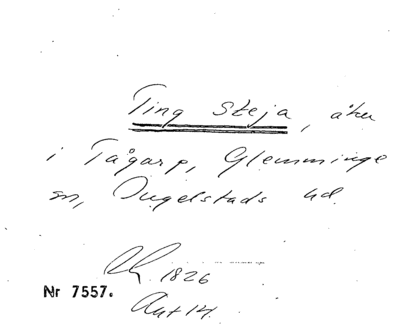 Ting Steja, åker
i Tågarp, Glemminge
sn, Ingelstads hd
1826
Nr 7557.
Akt 14.